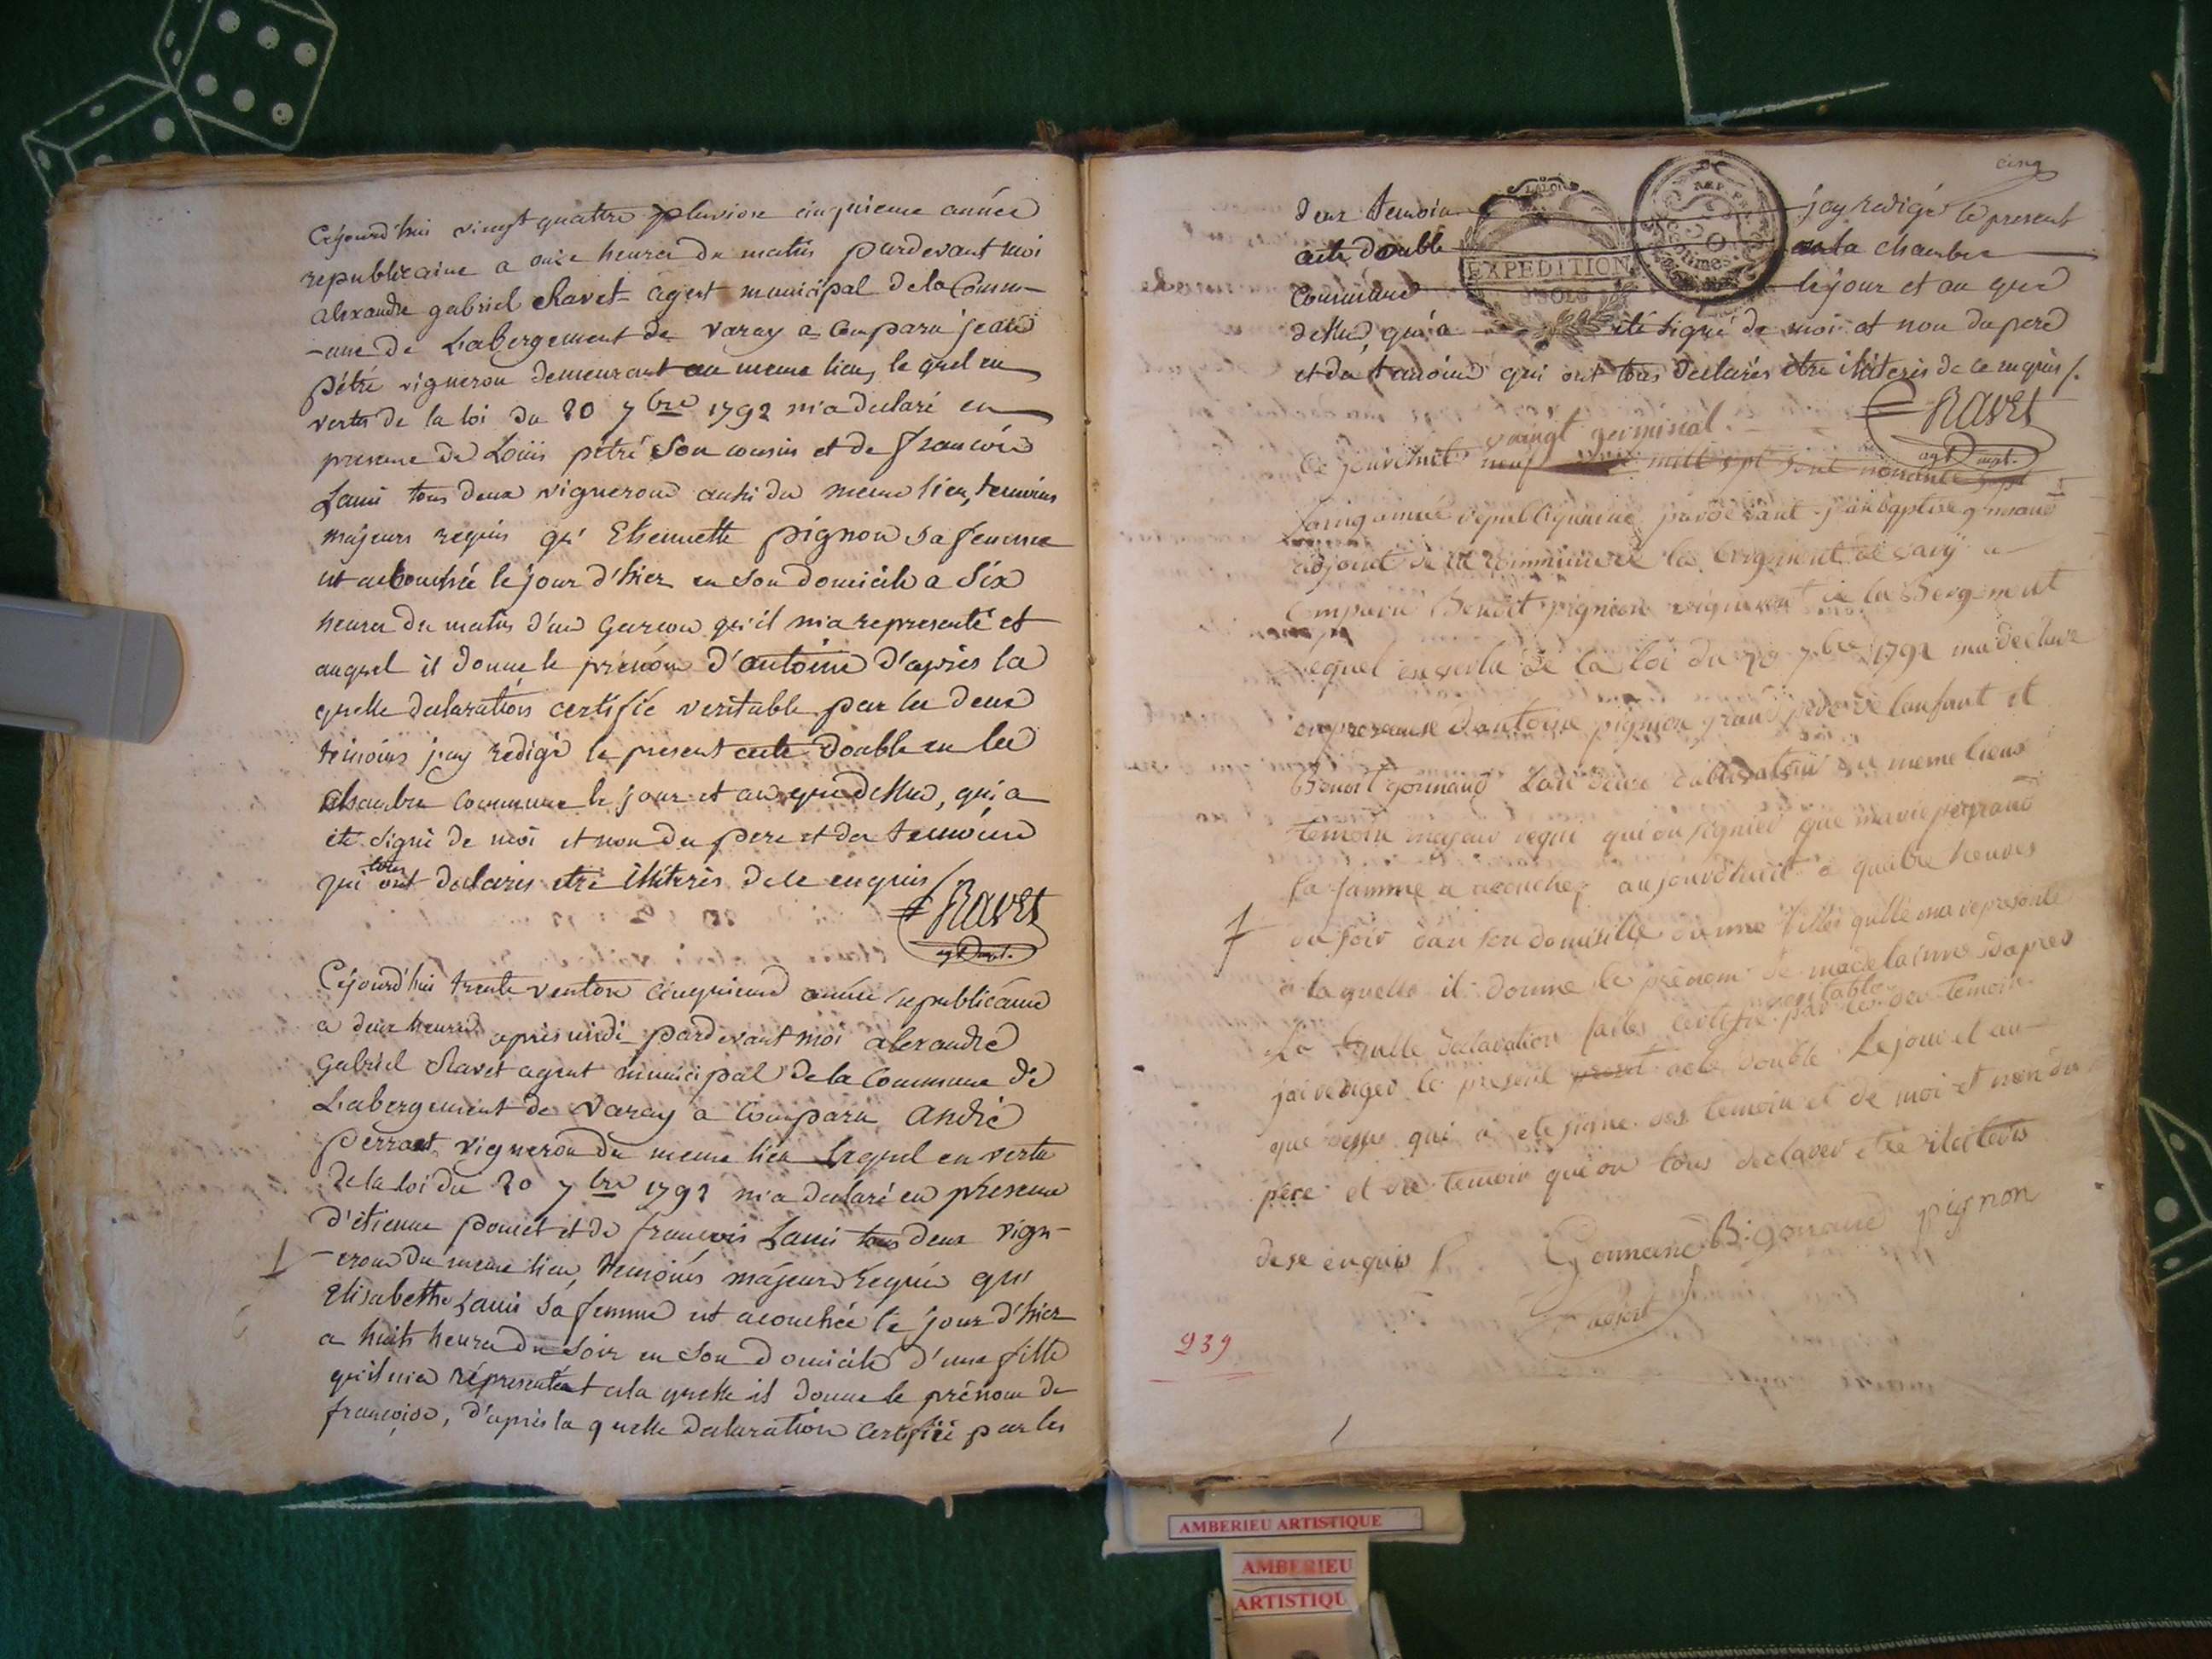 Cejourd'hui vingt quattre pluviose cinquieme année
republicaine a onze heures du matin pardevant moi
alexandre gabriel Ravet agent municipal de la Comm-
-une de Labergement de Varay a Comparu jean
pétré vigneron demeurant au meme lieu, le quel en
vertu de la loi du 20 7bre 1792 m'a declaré en
presence de Loüis pétré son cousin et de francois
Lami tous deux vignerons aussi du meme lieu, temoins
majeurs requis qu' Etiennette pignon sa femme
est acouchée le jour d'hier en son domicile a six
heures du matin d'un garcon qu'il m'a representé et
auquel il donne le prénom d'antoine d'après la
quelle declaration certifié veritable par les deux
temoins j'ay redigé le present acte double en la
chambre commune le jour et an que dessus, qui a
été signé de moi et non du pere et des temoins
qui tous ont declarés etre illiterés de ce enquis /.
Ravet
agt mpl.
Cejourd'hui trente ventose cinquieme année republicaine
a deux heures apres midi pardevant moi alexandre
Gabriel Ravet agent municipal de la Commune de
Labergement de Varay a Comparu andré
perraut vigneron du meme lieu Lequel en vertu
de la loi du 20 7bre 1792 m'a declaré en presence
d'étienne poncet et de francois Lami tous deux vign-
-erons du meme lieu, temoins majeurs requis qu'
Elisabethe Lami sa femme est acouchée le jour d'hier
a huit heures du soir en son domicile d'une fille
qu'il m'a répresentée et a la quelle il donne le prénom de
francoise, d'après la quelle declaration certifiée par les
cinq
deux temoins j'ay redigé le present
acte double en la chambre
Commune le jour et an que
dessus, qui a été signé de moi et non du pere
et des temoins qui ont tous declarés etre illiterés de ce enquis /.
LA LOI
EXPEDITION
REP. FR.
50
Centimes
Ravet
agt mpl.
vaingt germinal.
Ce jourdhuit neuf mill sept sent nonante sept
Sainq année republiquaine pardevant jan baptise gonand
adjoint de la commune de la bergment de varay a
Comparu Benoit pignion vigneron de la Bergement
lequel en vertu de la loi du 20 7bre 1792 ma declare
en presance d'antoine pignion grand pere de lanfant et
Benoit gonnand tout deux du meme lieux
temoin majeur requi qui on signier que marie perrand
sa famme a acouchez aujourdhuit a quatre heures
du soir dan son domisille dunne filles quelle ma represente
a laquelle il donne le prenom de madelainne dapres
la quelle declaration faites certifié veritable par les deu temoin
jai rediger le present acte double Le jour et an
que dessus qui a ete signe des temoin et de moi et non du
pere et des temoin qui on tous declarer etre iliteres
de se enquis
Gonnand B. gonand pignon
adjoint
239
AMBERIEU ARTISTIQUE
AMBERIEU
ARTISTIQU